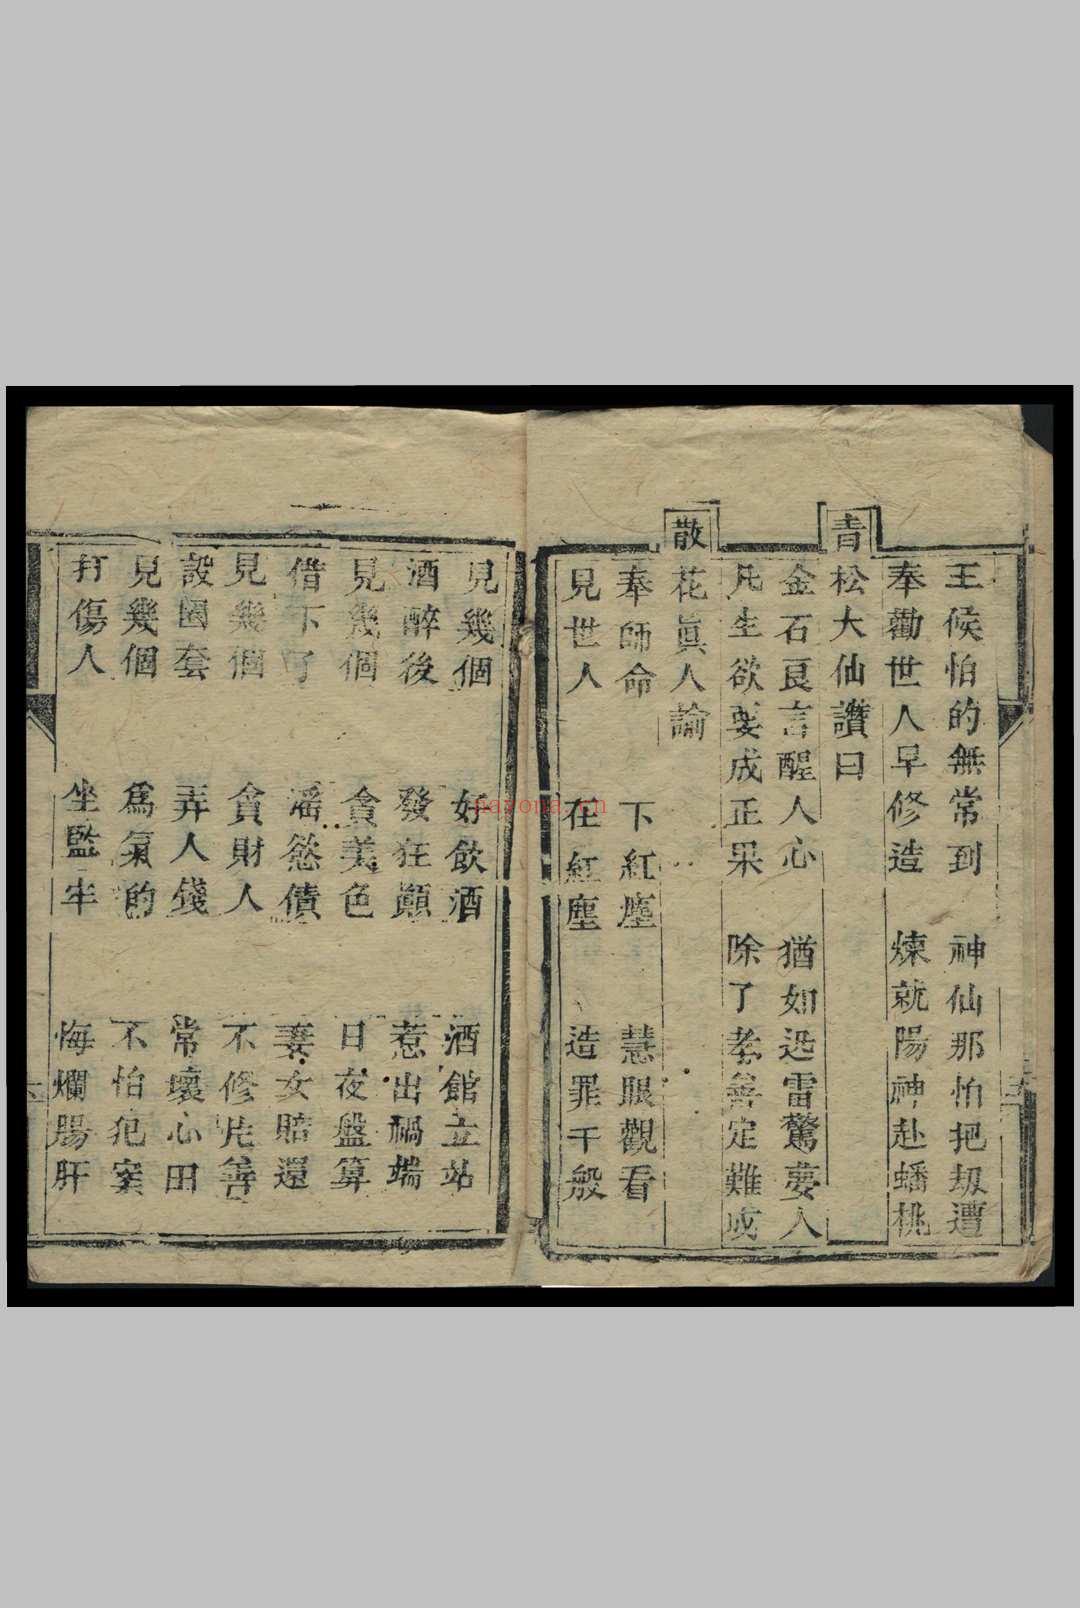 王候怕的無常到 神仙那怕把刼遭
奉勸世人早修造 煉就陽神赴蟠桃
青松大仙讚曰
金石良言醒人心 猶如迅雷驚夢人
凡生欲要成正果 除了孝善定難成
散花眞人諭
奉師命 下紅塵 慧眼觀看
見世人 在紅塵 造罪千般
見幾個 好飲酒 酒館立站
酒醉後 發狂顚 惹出禍端
見幾個 貪美色 日夜盤算
借下了 滛慾債 妻女賠還
見幾個 貪財人 不修片善
設圈套 弄人錢 常壞心田
見幾個 爲氣的 不怕犯案
打傷人 坐監牢 悔爛腸肝
nayona.cn